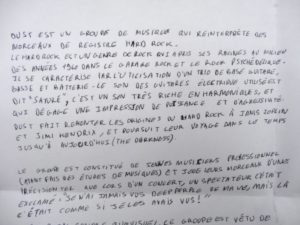 DUST EST UN GROUPE DE MUSIQUE QUI REINTERPRÈTE DES
MORCEAUX DE REGISTRE HARD ROCK.
LE HARD ROCK EST UN GENRE DE ROCK QUI A PRIS SES RACINES AU MILIEU
DES ANNÉES 1960 DANS LE GARAGE ROCK ET LE ROCK PSYCHÉDÉLIQUE.
IL SE CARACTERISE PAR L'UTILISATION D'UN TRIO DE BASE GUITARE,
BASSE ET BATTERIE. LE SON DES GUITARES ÉLECTRIQUE UTILISÉES
DIT "SATURÉ", C'EST UN SON TRÈS RICHE EN HARMONIQUES, ET
QUI DÉGAGE UNE IMPRESSION DE PUISSANCE ET D'AGRESSIVITÉ.
DUST FAIT REMONTER LES ORIGINES DU HARD ROCK À JANIS JOPLIN
ET JIMI HENDRIX, ET POURSUIT LEUR VOYAGE DANS LE TEMPS
JUSQU'À AUJOURD'HUI (THE DARKNESS).
LE GROUPE EST CONSTITUÉ DE JEUNES MUSICIENS PROFESSIONNEL
(AYANT FAIS DES ÉTUDES DE MUSIQUES) ET JOUE LEURS MORCEAUX D'UNE
PRÉCISION QUE LORS D'UN CONCERT, UN SPECTATEUR S'ÉTAIT
EXCLAMÉ: "JE N'AI JAMAIS VUS DEEP PURPLE DE MA VIE, MAIS LÀ
C'ÉTAIT COMME SI JE LES AVAIS VUS!"
CE GROUPE EST VÊTU DE